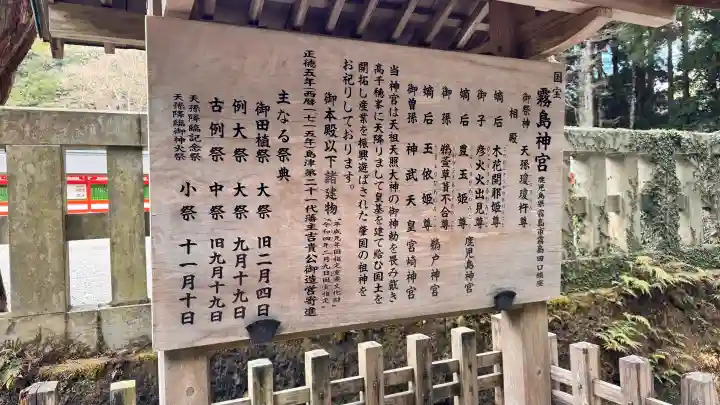 国宝
霧島神宮 鹿児島県霧島市霧島田口鎮座
御祭神 天孫瓊瓊杵尊
相殿
嫡后 木花開耶姫尊
御子 彦火火出見尊
嫡后 豊玉姫尊 鹿児島神宮
御孫 鵜葺草葺不合尊
嫡后 玉依姫尊 鵜戸神宮
御曽孫 神武天皇 宮崎神宮
当神宮は天祖天照大神の御神勅を畏み戴き
高千穂峯に天降りまして皇基を建て給ひ国土を
開拓し産業を振興遊ばされた肇国の祖神を
お祀りしております。
正徳五年西暦一七一五年島津第二十一代藩主吉貴公御造営寄進
御本殿以下諸建物
主なる祭典
御田植祭 大祭 旧二月四日
例大祭 大祭 九月十九日
古例祭 中祭 旧九月十九日
天孫降臨記念祭
天孫降臨御神火祭 小祭 十一月十日